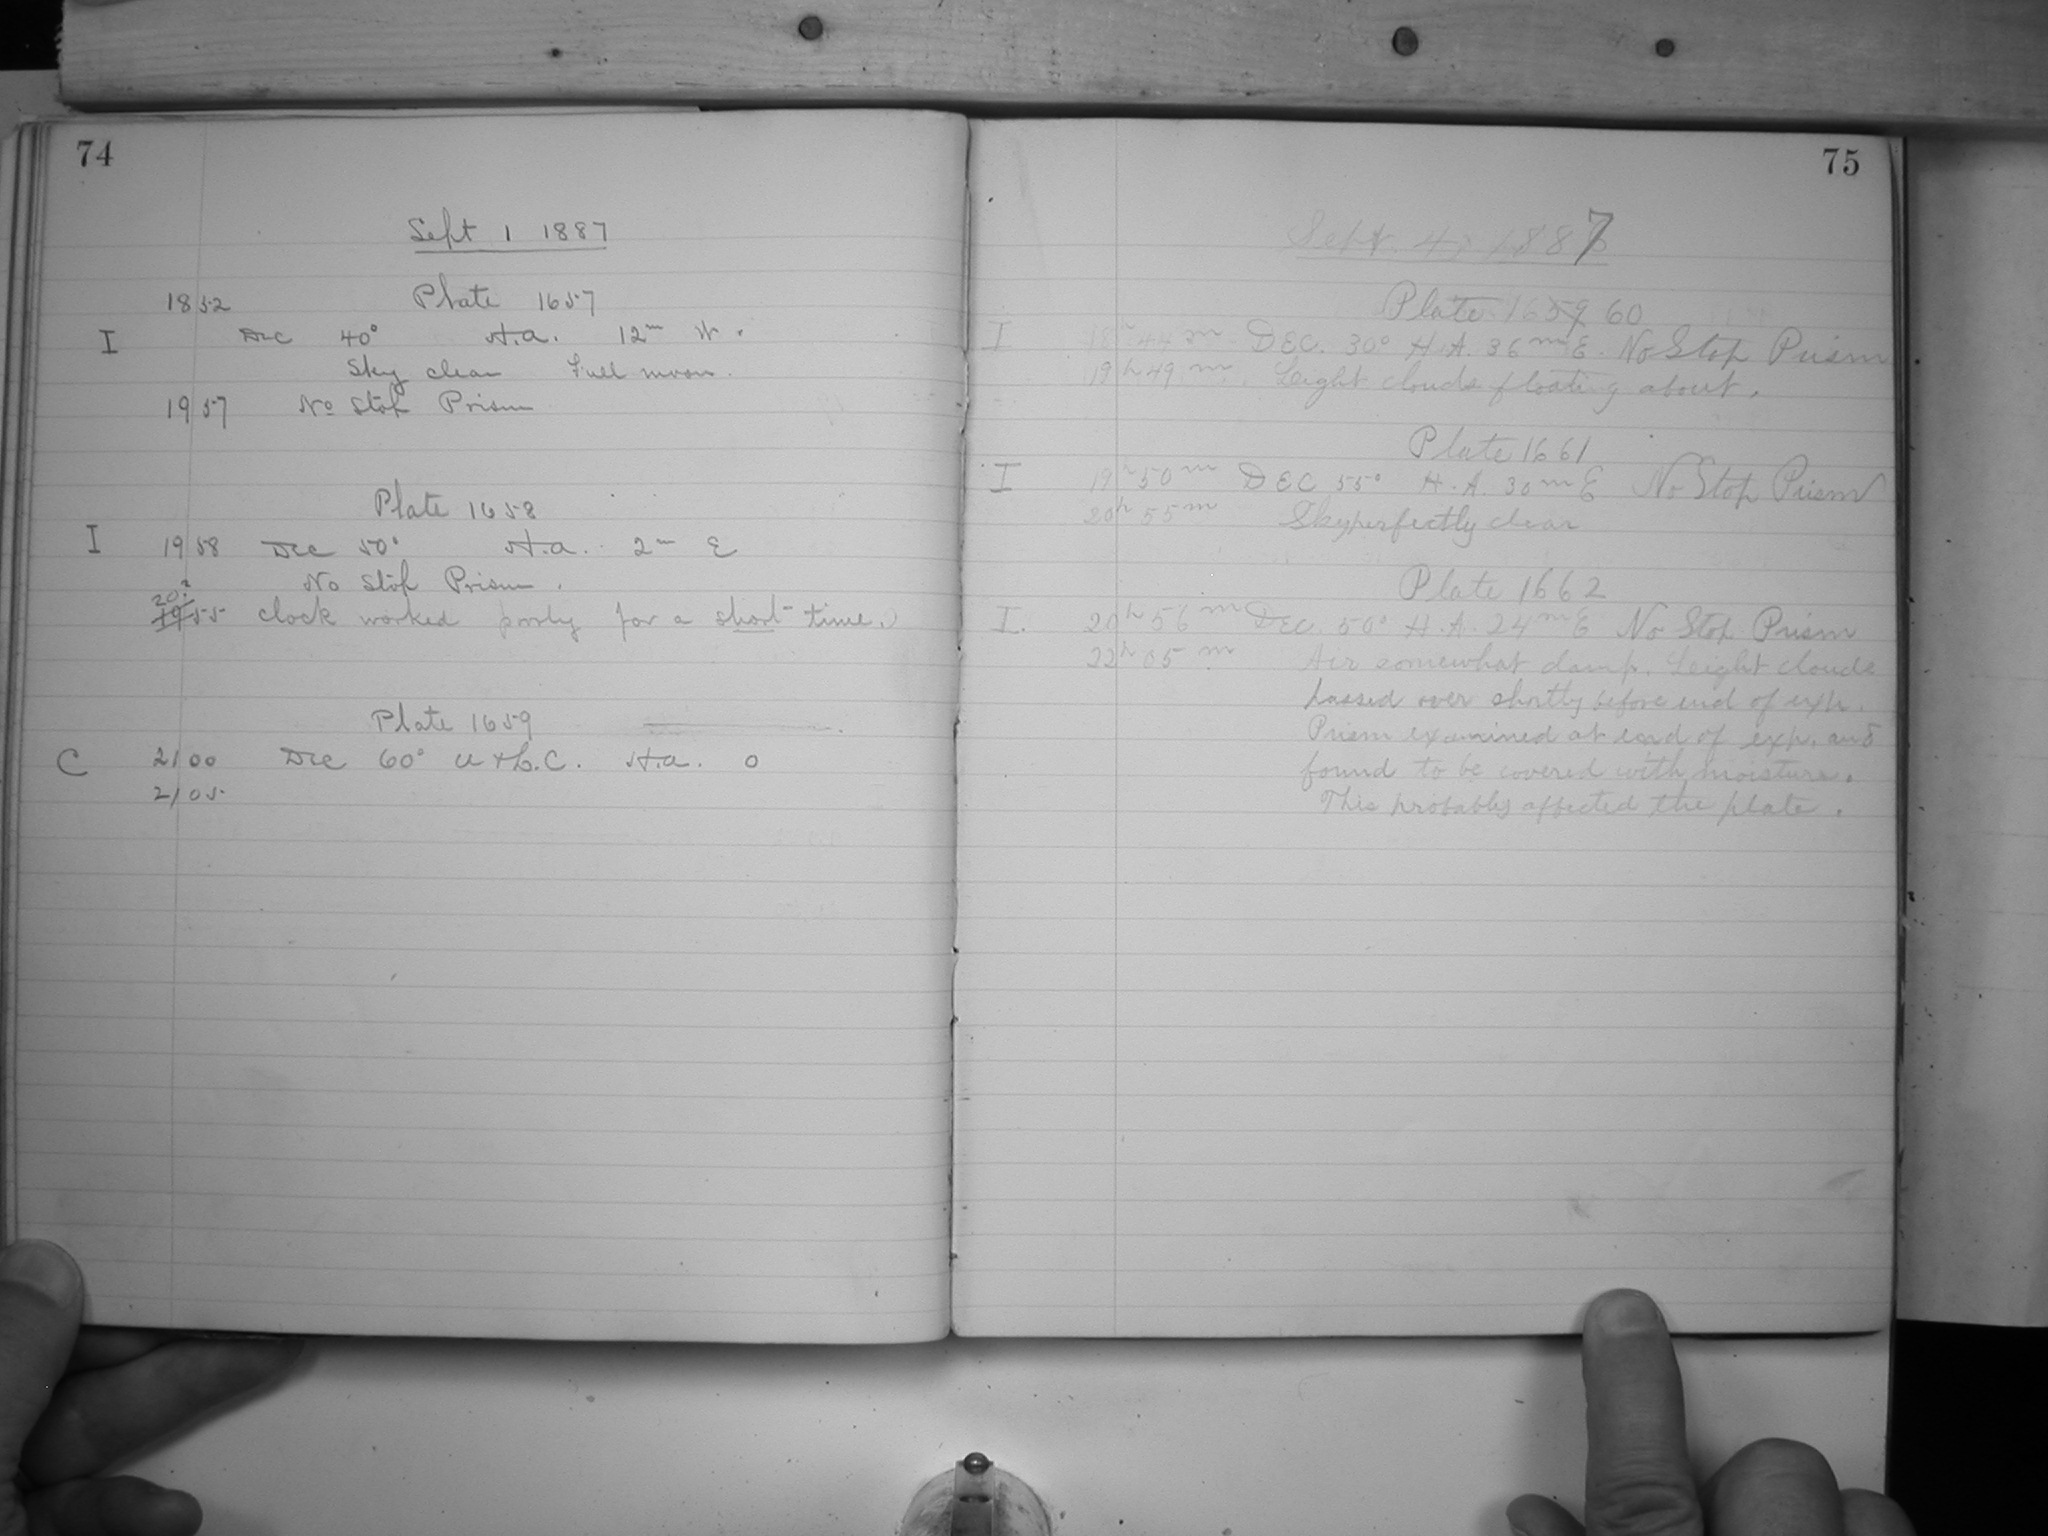 74
Sept 1 1887
18 52 Plate 1657
I Dec 40° H.a. 12m W.
Sky clear Full moon.
19 57 No Stop Prism
Plate 1658
I 19 58 Dec 50° H.a. 2m E
No Stop Prism.
20?
19 55 clock worked poorly for a short time.
Plate 1659
C 21 00 Dec 60° H.a. 0
21 05
75
Sept. 4, 1887
Plate 1659 60
I 18h 44m DEC. 30° H.A. 36m E. No Stop Prism
19h 49m. Leight clouds floating about.
Plate 1661
I 19h 50m DEC 55° H.A. 30m E No Stop Prism
20h 55m Sky perfectly clear
Plate 1662
I. 20h 56m DEC. 50° H.A. 24m E No Stop Prism
22h 05m Air somewhat damp. Leight clouds
passed over shortly before end of exp.
Prism examined at end of exp. and
found to be covered with moisture.
This probably affected the plate.